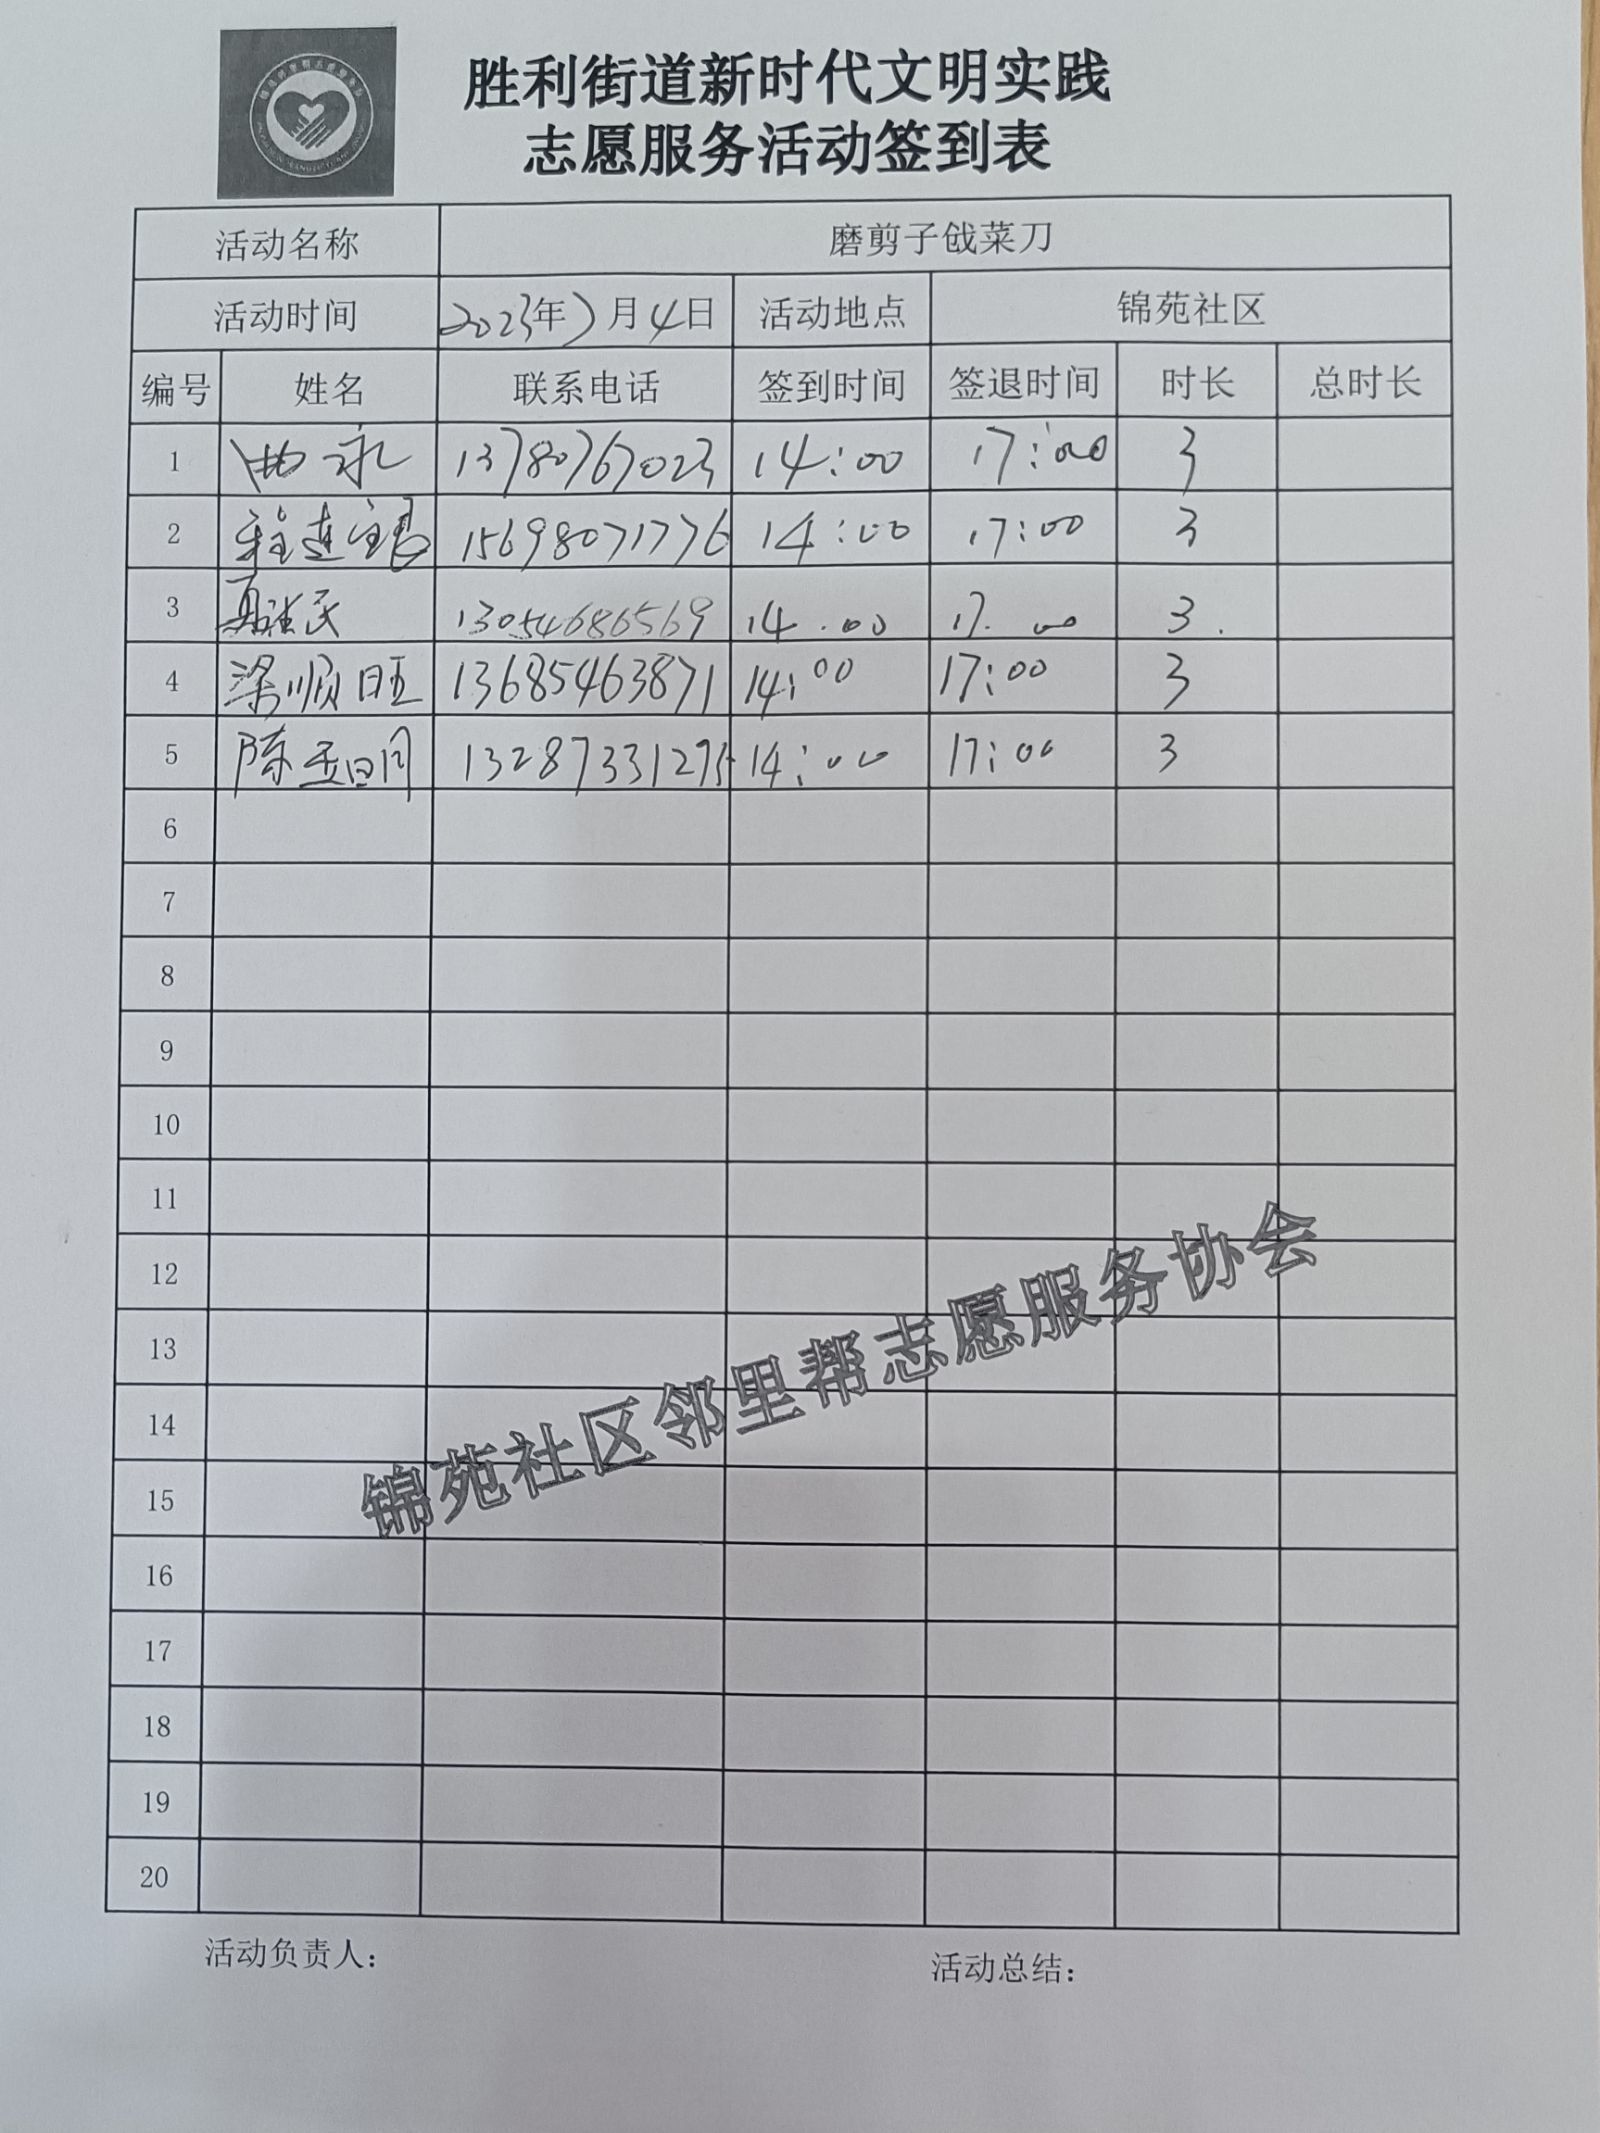 胜利街道新时代文明实践
志愿服务活动签到表
活动名称 磨剪子戗菜刀
活动时间 2023年7月4日 活动地点 锦苑社区
编号 姓名 联系电话 签到时间 签退时间 时长 总时长
1 曲永 13780767023 14:00 17:00 3
2 15698071776 14:00 17:00 3
3 13054686569 14.00 17.00 3.
4 梁顺旺 13685463871 14:00 17:00 3
5 陈 14:00 17:00 3
6
7
8
9
10
11
12
13
14
15
16
17
18
19
20
锦苑社区邻里帮志愿服务协会
活动负责人: 活动总结: